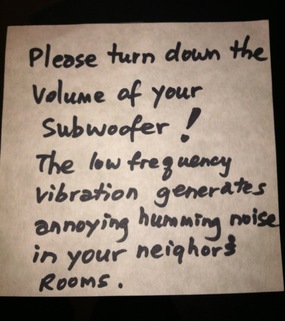 Please turn down the
Volume of your
Subwoofer!
The low frequency
vibration generates
annoying humming noise
in your neighors
Rooms.